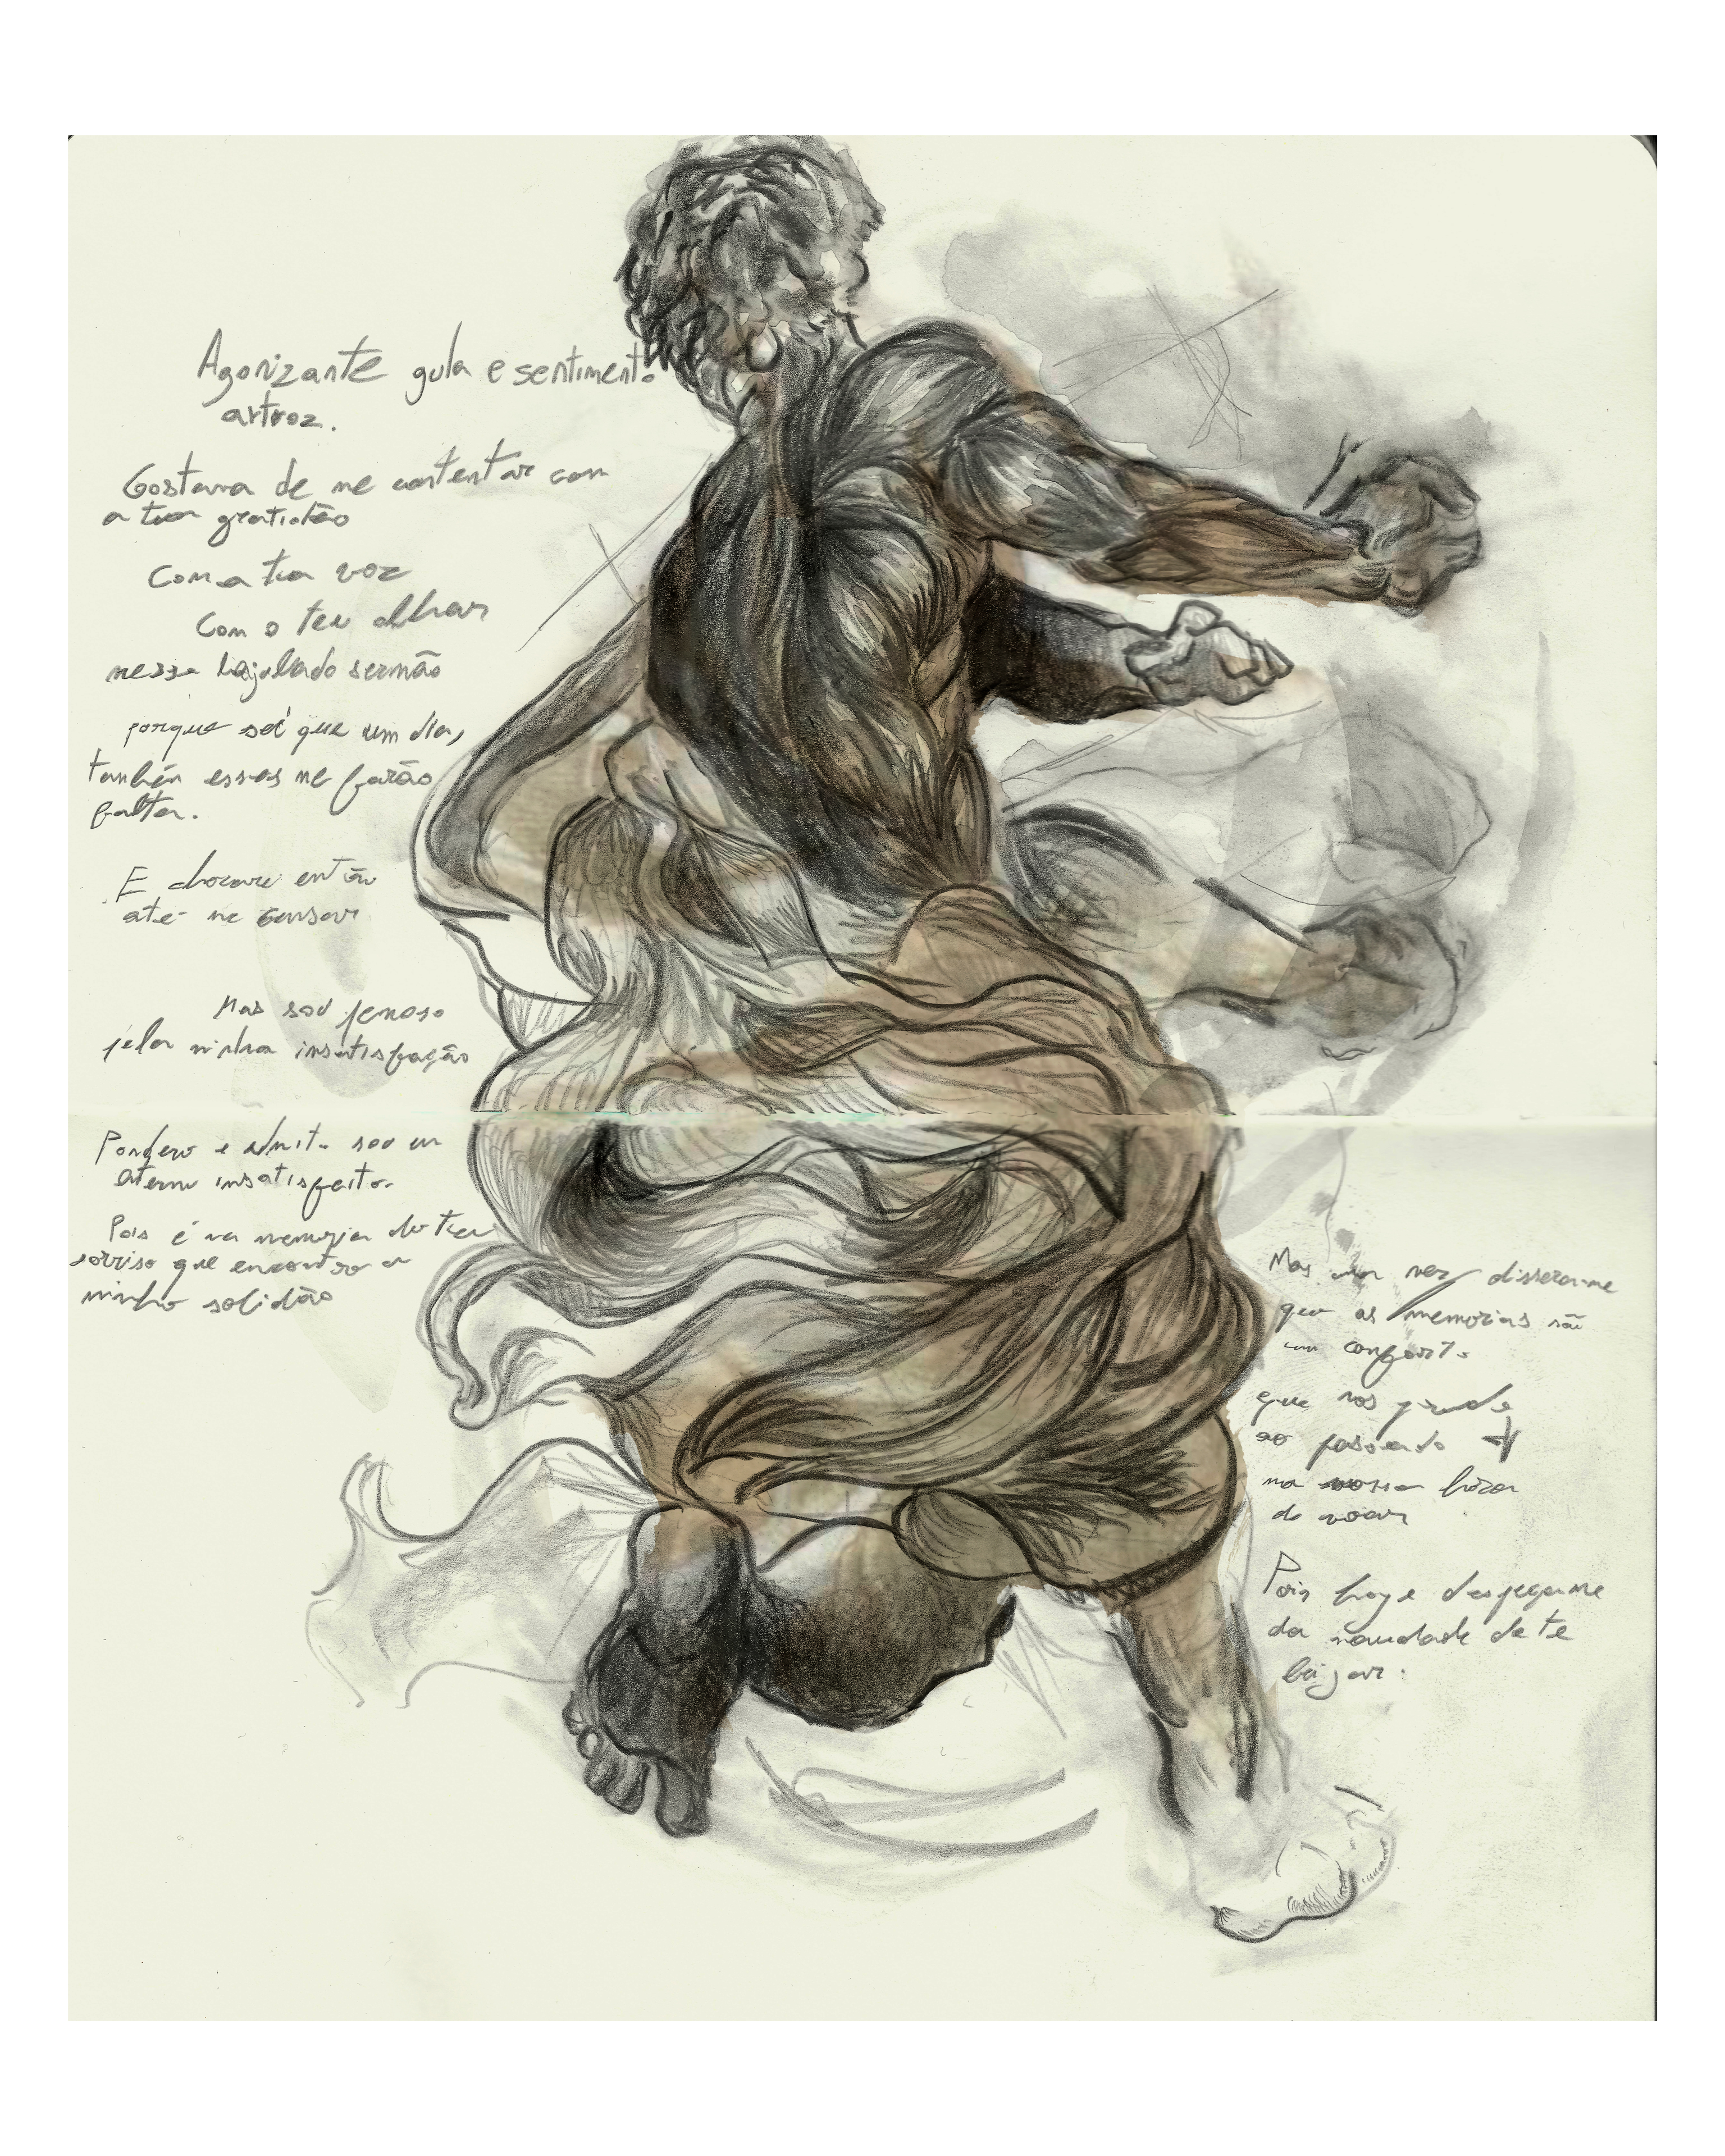 Agonizante gula e sentimento
artroz.
Gostava de me contentar com
a tua gratidão
Com a tua voz
Com o teu olhar
nesse sermão
porque sei que um dia,
também esses me farão
falta.
E chorarei então
até me cansar
Mas sou penoso
pela minha insatisfação
Pondero e admito sou um
eterno insatisfeito.
Pois é na memoria do teu
sorriso que encontro a
minha solidão
Mas uma vez disseram-me
que as memorias são
um conforto
que nos prende
ao passado
na nossa hora
de voar
Pois hoje despeço-me
da saudade de te
beijar.